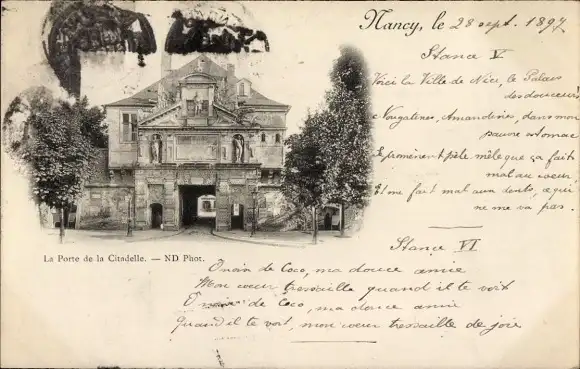 Nancy, le 28 sept. 1897
Stance V
Voici la Ville de Nice, le Palais
des douceurs
Nougatines, Amandines, dans mon
pauvre estomac
Se promènent pêle mêle que ça fait
mal au cœur
Et me fait mal aux dents, ce qui
ne me va pas.
La Porte de la Citadelle. — ND Phot.
Stance VI
O noix de Coco, ma douce amie
Mon cœur tressaille quand il te voit
O noix de Coco, ma douce amie
Quand il te voit, mon cœur tressaille de joie